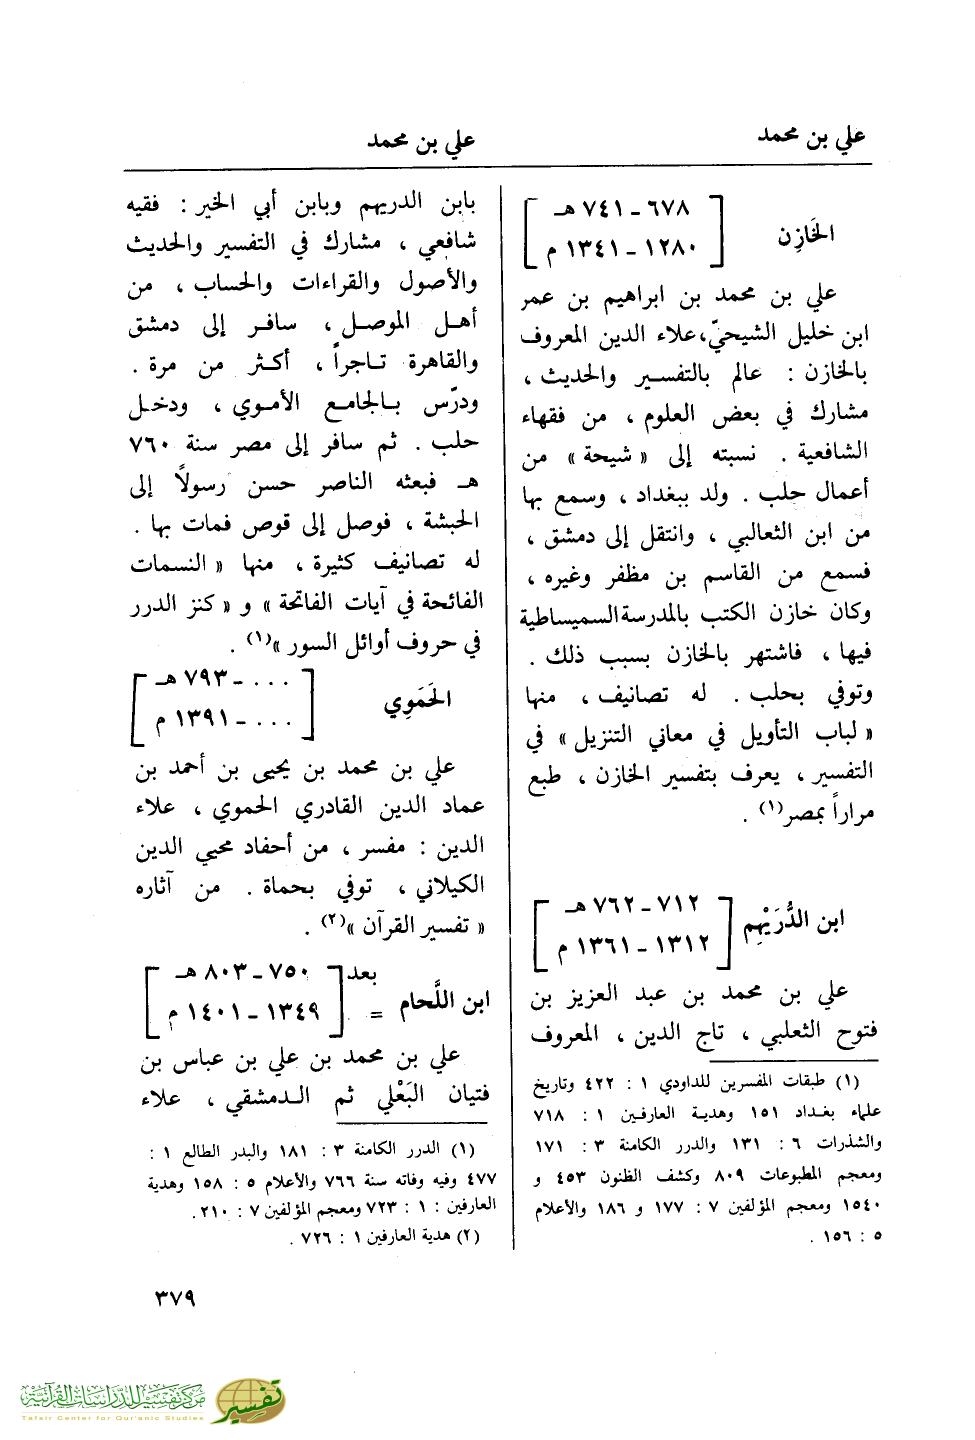 علي بن محمد
علي بن محمد
الخَازِن
٦٧٨ - ٧٤١ هـ
١٢٨٠ - ١٣٤١ م
علي بن محمد بن ابراهيم بن عمر
ابن خليل الشيحيّ، علاء الدين المعروف
بالخازن : عالم بالتفسير والحديث ،
مشارك في بعض العلوم ، من فقهاء
الشافعية . نسبته إلى « شيحة » من
أعمال حلب . ولد ببغداد ، وسمع بها
من ابن الثعالبي ، وانتقل إلى دمشق ،
فسمع من القاسم بن مظفر وغيره ،
وكان خازن الكتب بالمدرسة السميساطية
فيها ، فاشتهر بالخازن بسبب ذلك .
وتوفي بحلب . له تصانيف ، منها
« لباب التأويل في معاني التنزيل » في
التفسير ، يعرف بتفسير الخازن ، طبع
مراراً بمصر(١) .
ابن الدُّرَيْهِم
٧١٢ - ٧٦٢ هـ
١٣١٢ - ١٣٦١ م
علي بن محمد بن عبد العزيز بن
فتوح الثعلبي ، تاج الدين ، المعروف
(١) طبقات المفسرين للداودي ١ : ٤٢٢ وتاريخ
علماء بغداد ١٥١ وهدية العارفين ١ : ٧١٨
والشذرات ٦ : ١٣١ والدرر الكامنة ٣ : ١٧١
ومعجم المطبوعات ٨٠٩ وكشف الظنون ٤٥٣ و
١٥٤٠ ومعجم المؤلفين ٧ : ١٧٧ و ١٨٦ والأعلام
٥ : ١٥٦ .
بابن الدريهم وبابن أبي الخير : فقيه
شافعي ، مشارك في التفسير والحديث
والأصول والقراءات والحساب ، من
أهل الموصل ، سافر إلى دمشق
والقاهرة تاجراً ، أكثر من مرة .
ودرّس بالجامع الأموي ، ودخل
حلب . ثم سافر إلى مصر سنة ٧٦٠
هـ فبعثه الناصر حسن رسولاً إلى
الحبشة ، فوصل إلى قوص فمات بها .
له تصانيف كثيرة ، منها « النسمات
الفائحة في آيات الفاتحة » و « كنز الدرر
في حروف أوائل السور »(١) .
الحَمَوِي
... - ٧٩٣ هـ
... - ١٣٩١ م
علي بن محمد بن يحيى بن أحمد بن
عماد الدين القادري الحموي ، علاء
الدين : مفسر ، من أحفاد محيي الدين
الكيلاني ، توفي بحماة . من آثاره
« تفسير القرآن »(٢) .
ابن اللَّحام
بعد ٧٥٠ - ٨٠٣ هـ
= ١٣٤٩ - ١٤٠١ م
علي بن محمد بن علي بن عباس بن
فتيان البَعْلي ثم الدمشقي ، علاء
(١) الدرر الكامنة ٣ : ١٨١ والبدر الطالع ١ :
٤٧٧ وفيه وفاته سنة ٧٦٦ والأعلام ٥ : ١٥٨ وهدية
العارفين : ١ : ٧٢٣ ومعجم المؤلفين ٧ : ٢١٠.
(٢) هدية العارفين ١ : ٧٢٦ .
٣٧٩
مركز تفسير للدراسات القرآنية
Tafsir Center for Qur'anic Studies
تفسير